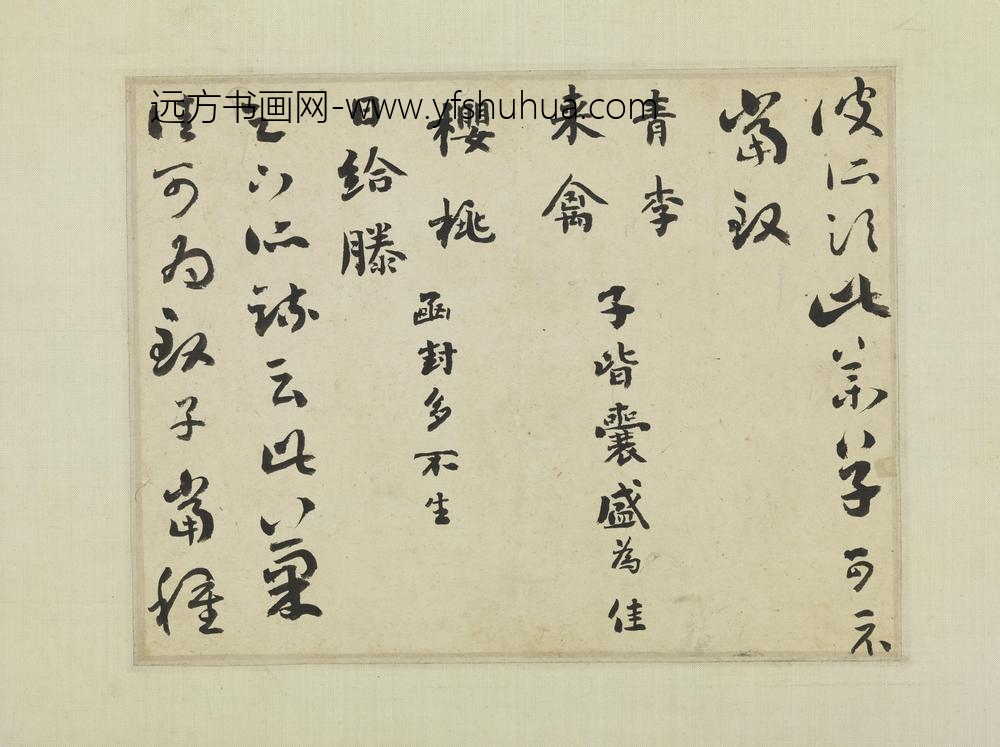 远方书画网-www.yfshuhua.com
彼所須此藥草可示
當致
青李
来禽
子皆囊盛為佳
櫻桃
日給滕
函封多不生
足下所疏云此菓
佳可為致子當種